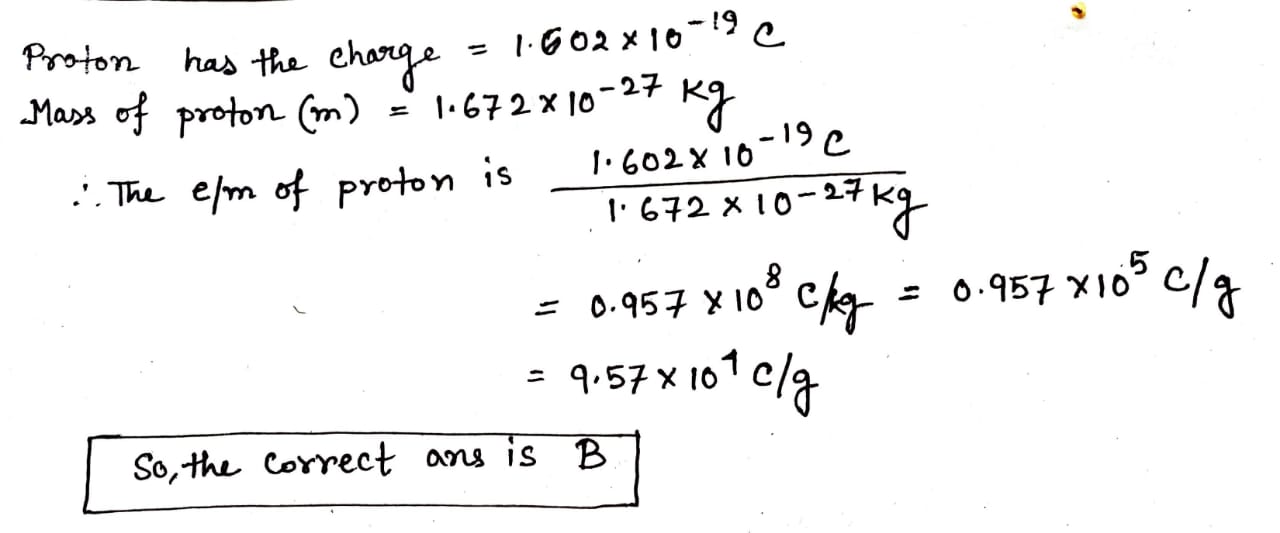 Proton has the charge = 1.602 × 10⁻¹⁹ C
Mass of proton (m) = 1.672 × 10⁻²⁷ kg
∴ The e/m of proton is 1.602 × 10⁻¹⁹ C / 1.672 × 10⁻²⁷ kg
= 0.957 × 10⁸ C/kg = 0.957 × 10⁵ C/g
= 9.57 × 10⁴ C/g
So, the correct ans is B